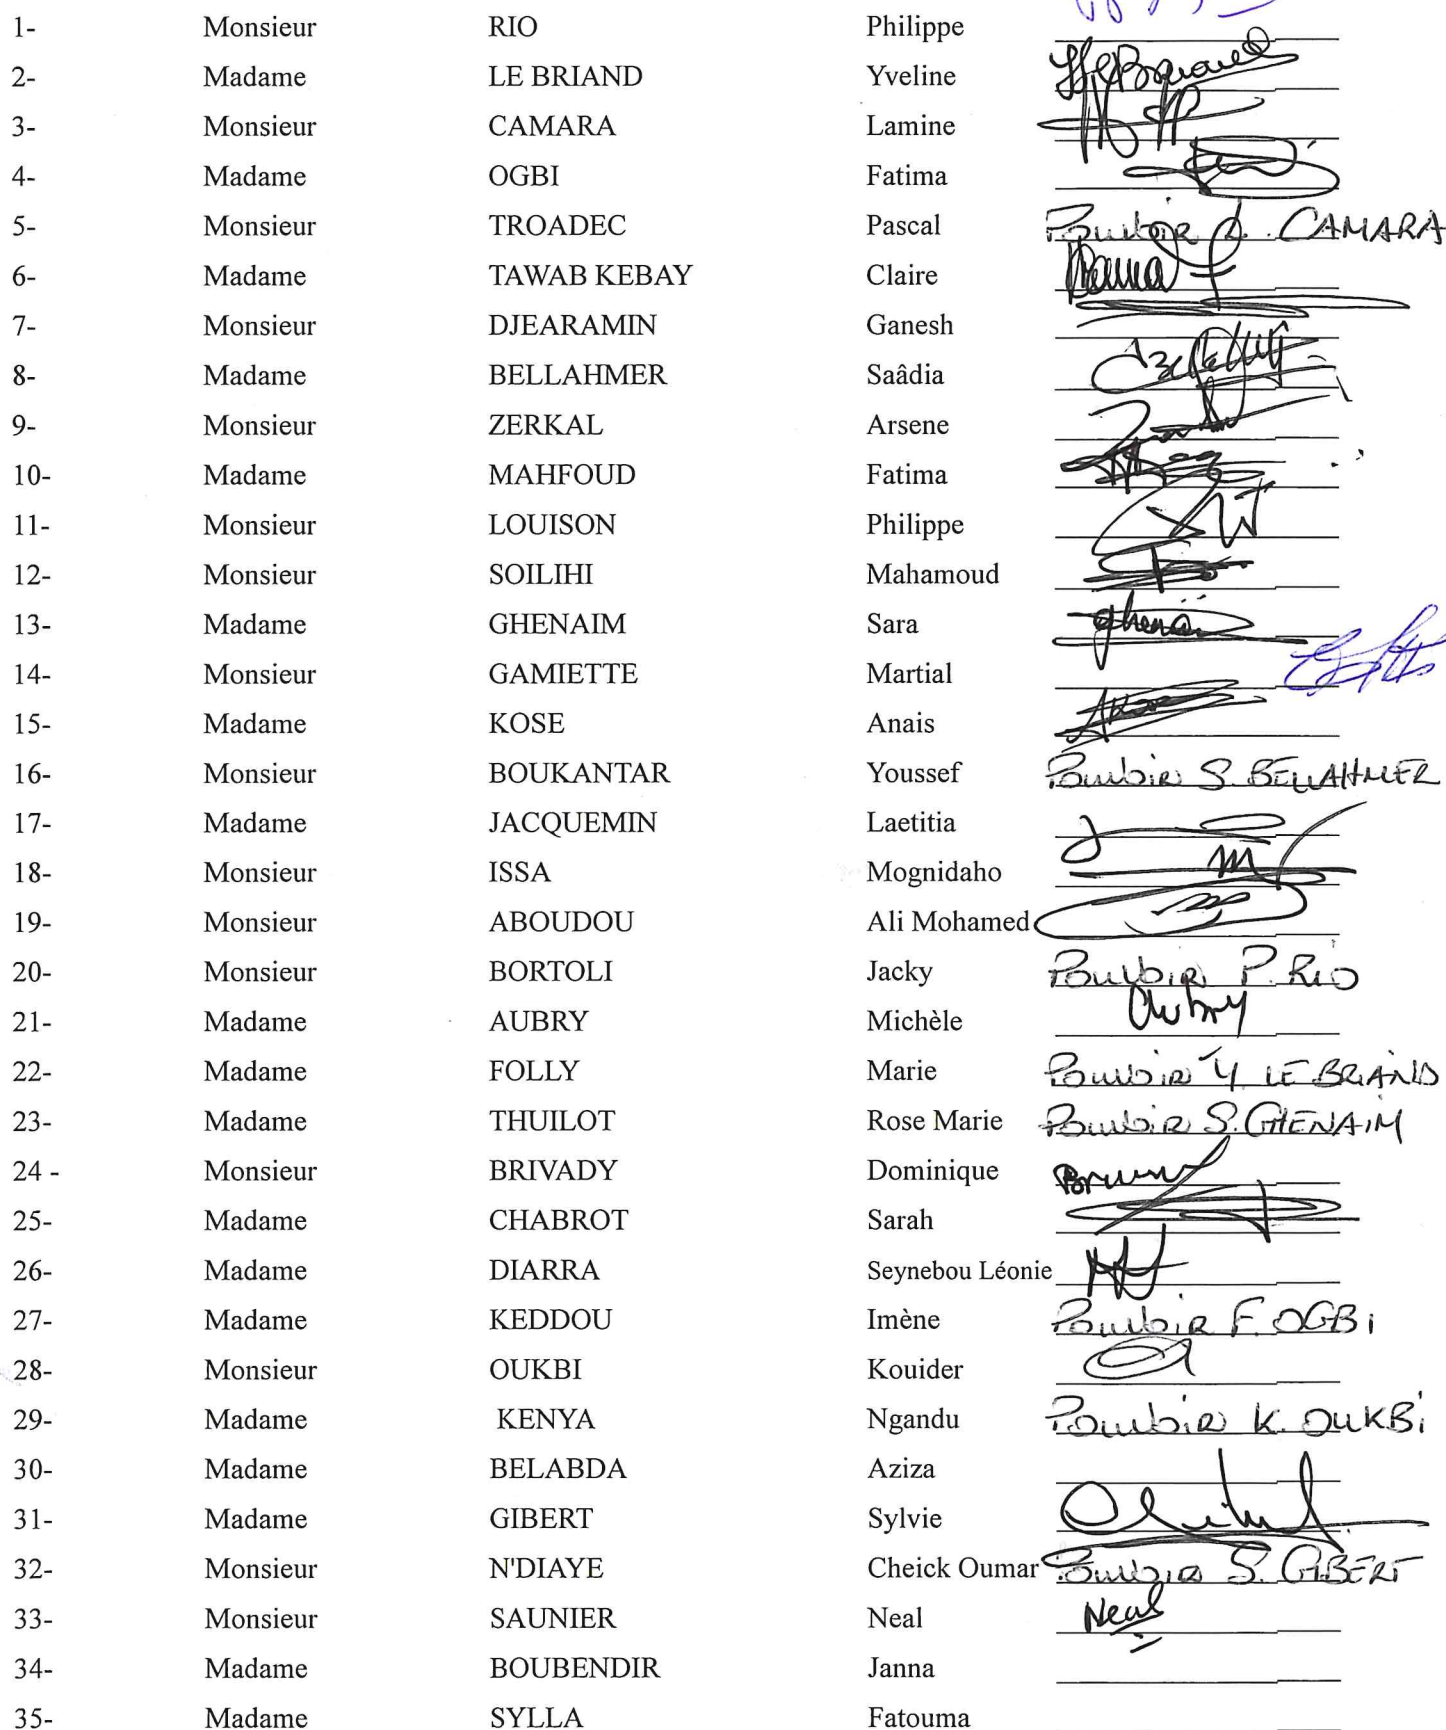 1- Monsieur RIO Philippe
2- Madame LE BRIAND Yveline
3- Monsieur CAMARA Lamine
4- Madame OGBI Fatima
5- Monsieur TROADEC Pascal Pouvoir L. CAMARA
6- Madame TAWAB KEBAY Claire
7- Monsieur DJEARAMIN Ganesh
8- Madame BELLAHMER Saâdia
9- Monsieur ZERKAL Arsene
10- Madame MAHFOUD Fatima
11- Monsieur LOUISON Philippe
12- Monsieur SOILIHI Mahamoud
13- Madame GHENAIM Sara
14- Monsieur GAMIETTE Martial
15- Madame KOSE Anais
16- Monsieur BOUKANTAR Youssef Pouvoir S. BELLAHMER
17- Madame JACQUEMIN Laetitia
18- Monsieur ISSA Mognidaho
19- Monsieur ABOUDOU Ali Mohamed
20- Monsieur BORTOLI Jacky Pouvoir P. RIO
21- Madame AUBRY Michèle Aubry
22- Madame FOLLY Marie Pouvoir Y LE BRIAND
23- Madame THUILOT Rose Marie Pouvoir S. GHENAIM
24 - Monsieur BRIVADY Dominique
25- Madame CHABROT Sarah
26- Madame DIARRA Seynebou Léonie
27- Madame KEDDOU Imène Pouvoir F. OGBI
28- Monsieur OUKBI Kouider
29- Madame KENYA Ngandu Pouvoir K. OUKBI
30- Madame BELABDA Aziza
31- Madame GIBERT Sylvie
32- Monsieur N'DIAYE Cheick Oumar Pouvoir S. GIBERT
33- Monsieur SAUNIER Neal Neal
34- Madame BOUBENDIR Janna
35- Madame SYLLA Fatouma